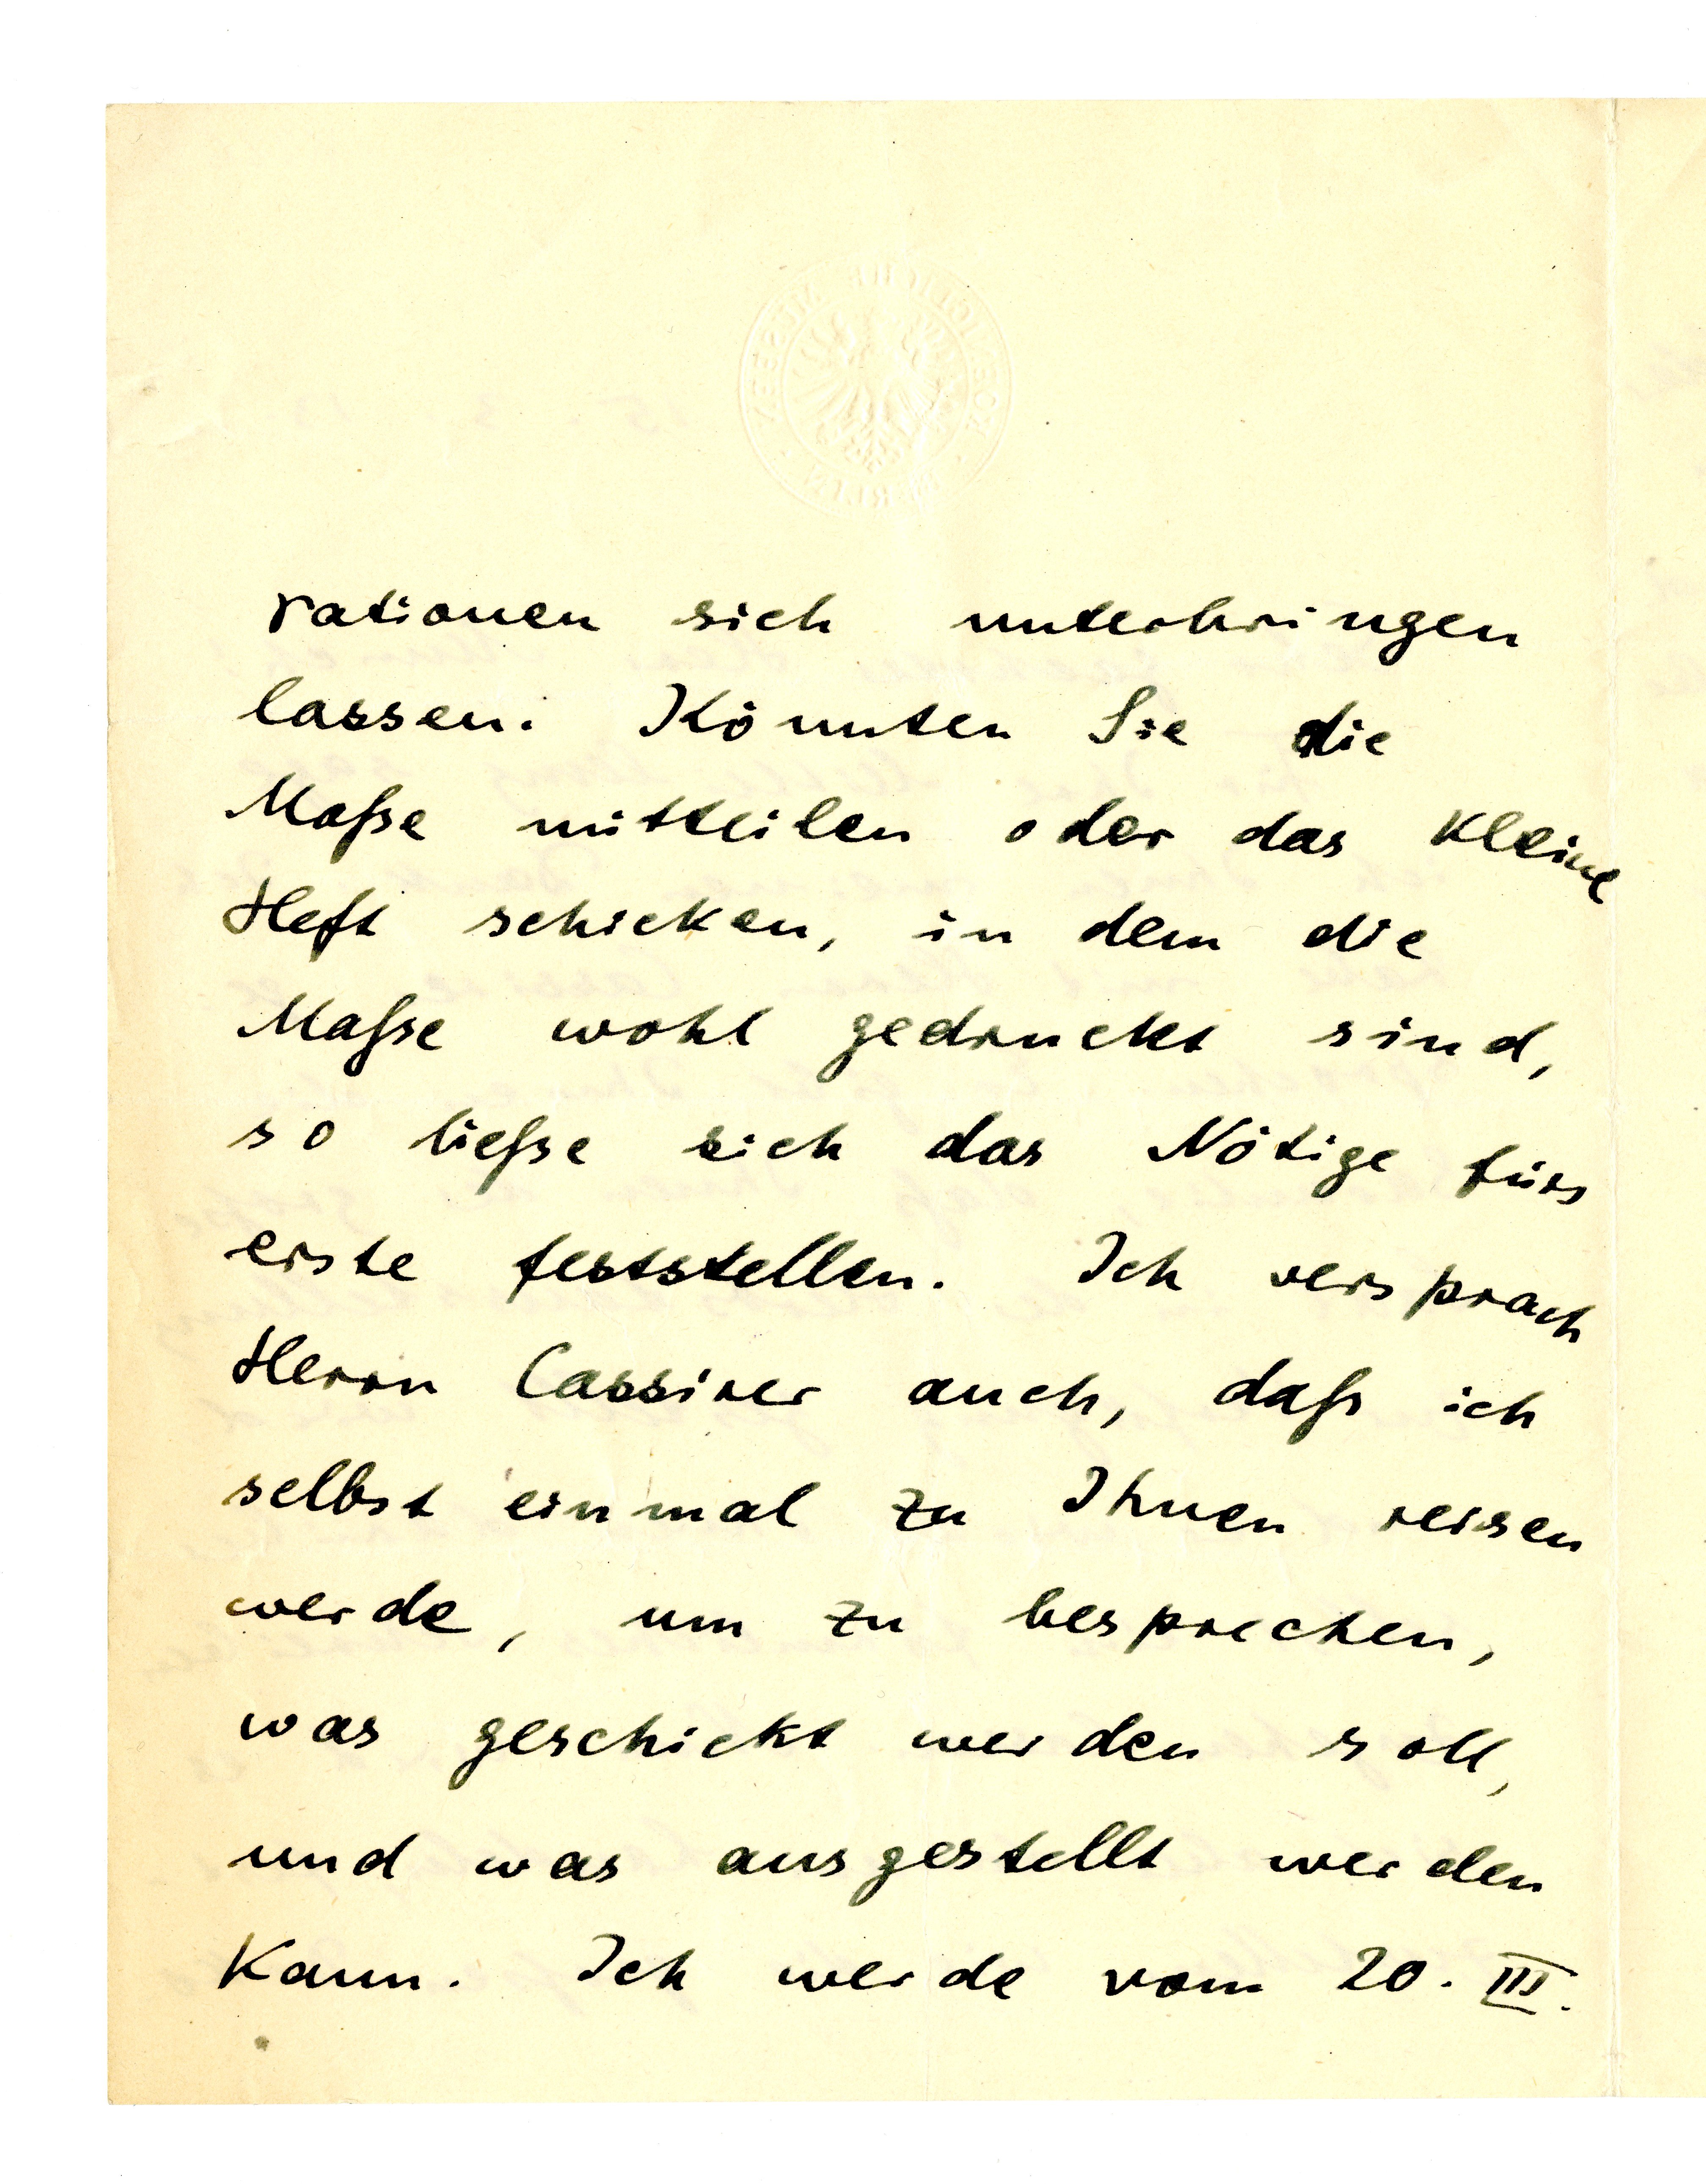 rationen sich unterbringen
lassen. Könnten Sie die
Maße mitteilen oder das kleine
Heft schicken, in dem die
Maße wohl gedruckt sind,
so ließe sich das Nötige fürs
erste feststellen. Ich versprach
Herrn Cassirer auch, daß ich
selbst einmal zu Ihnen reisen
werde, um zu besprechen,
was geschickt werden soll,
und was ausgestellt werden
kann. Ich werde vom 20. III.